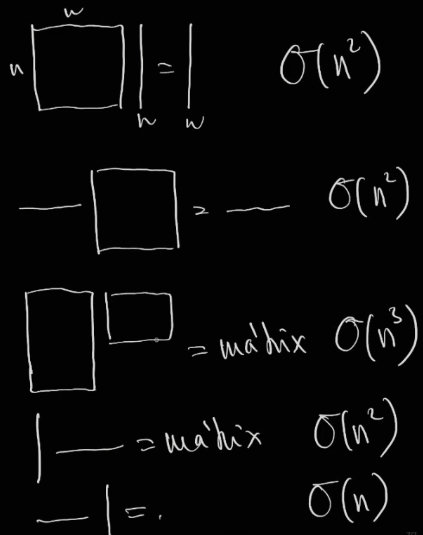 n
n = O(n²)
n n
= O(n²)
= mátrix O(n³)
= mátrix O(n²)
= . O(n)